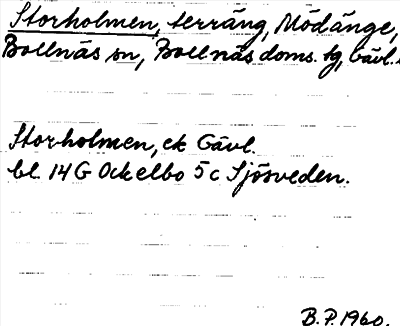 Storholmen, terräng, Mödänge,
Bollnäs sn, Bollnäs doms. tg, Gävl.
Storholmen, ek Gävl.
bl. 14 G Ockelbo 5 c Sjösveden.
B.P. 1960.